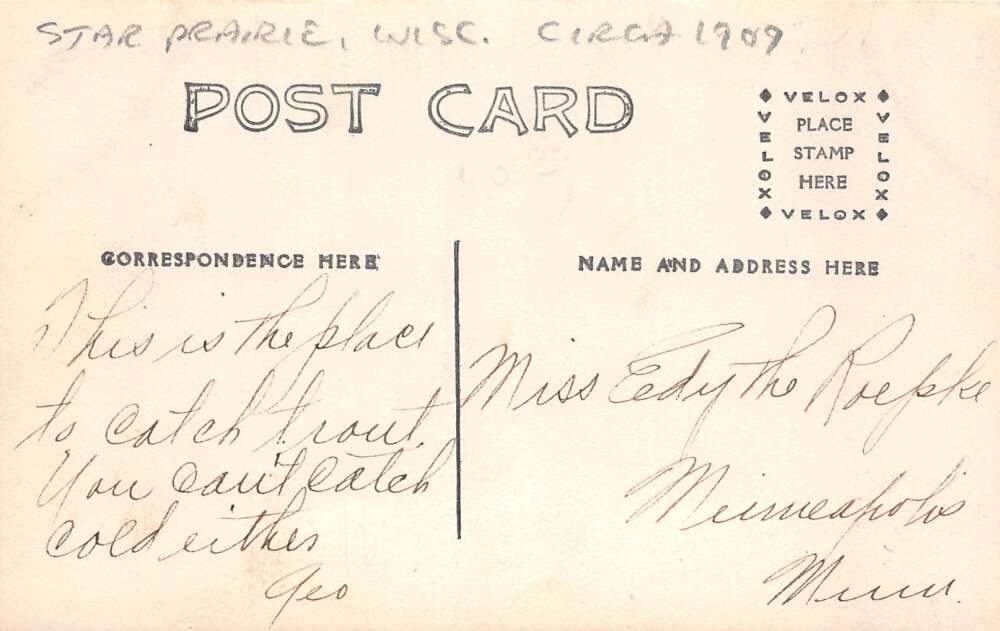 STAR PRAIRIE, WISC. CIRCA 1909
POST CARD
VELOX
VELOX
PLACE
STAMP
HERE
VELOX
VELOX
CORRESPONDENCE HERE
This is the place
to catch trout.
You can't catch
cold either
Geo
NAME AND ADDRESS HERE
Miss Edythe Roepke
Minneapolis
Minn.